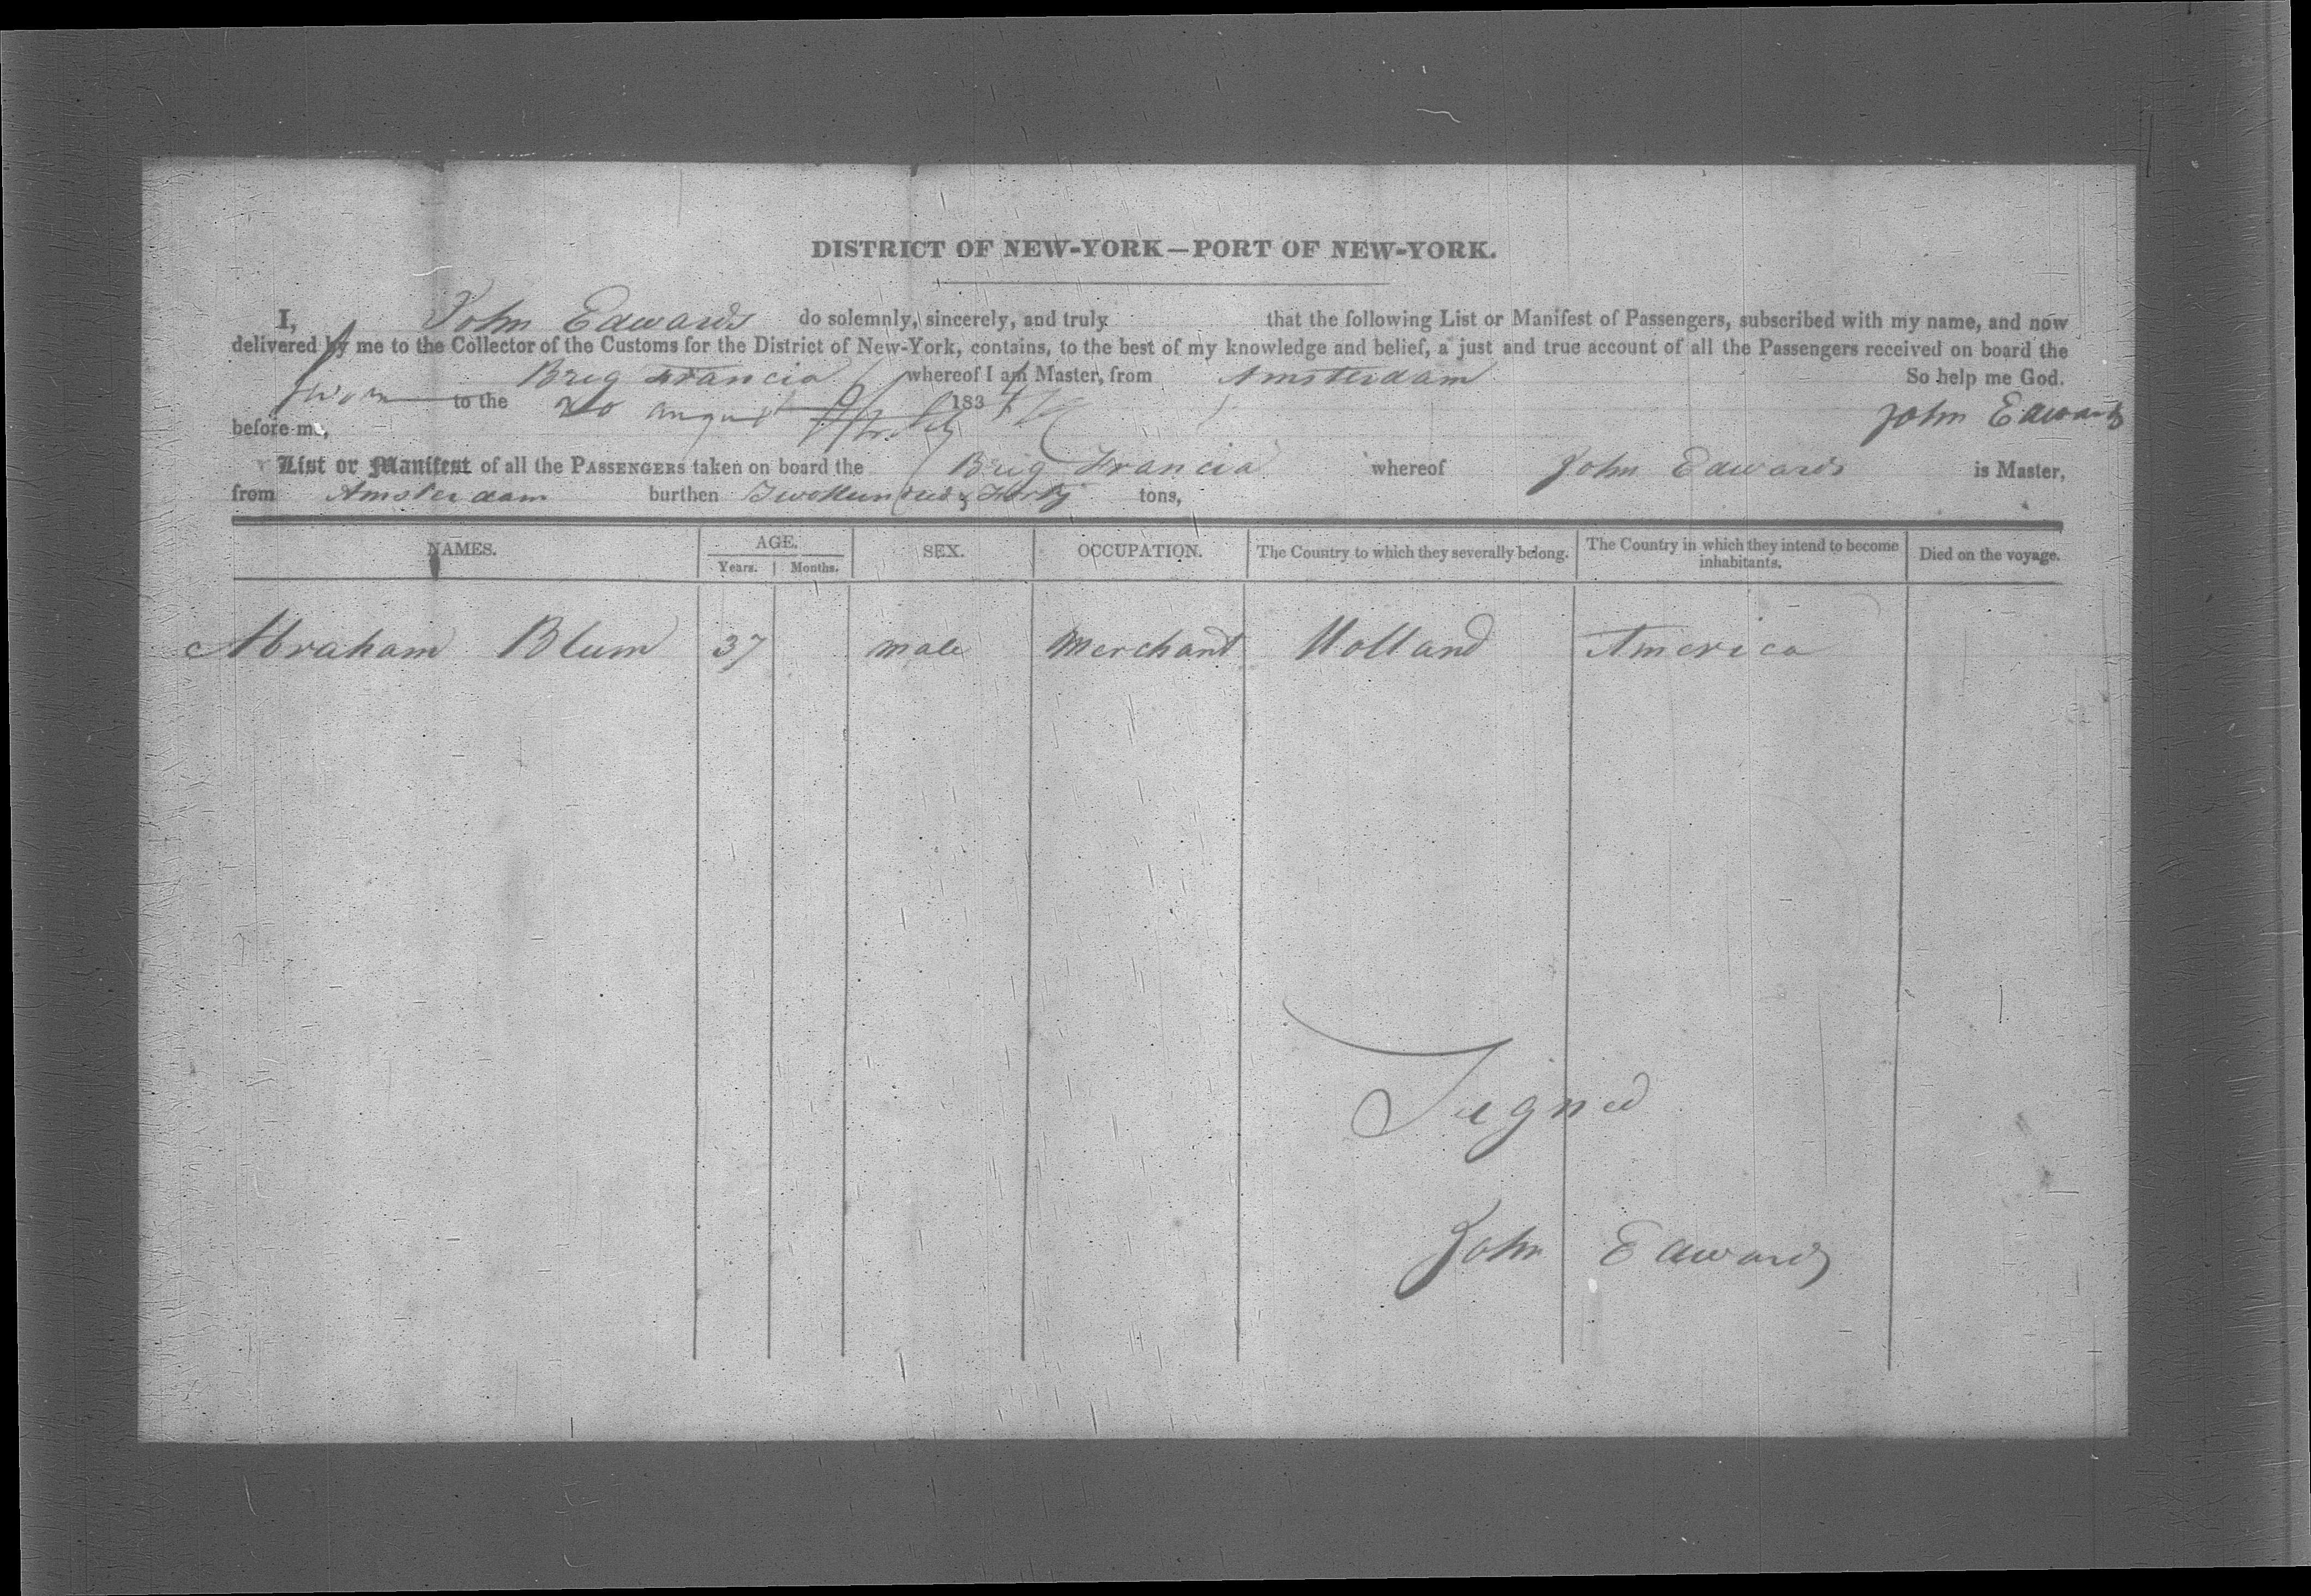 DISTRICT OF NEW-YORK—PORT OF NEW-YORK.
I, John Edwards do solemnly, sincerely, and truly that the following List or Manifest of Passengers, subscribed with my name, and now
delivered by me to the Collector of the Customs for the District of New-York, contains, to the best of my knowledge and belief, a just and true account of all the Passengers received on board the
Brig Francia whereof I am Master, from Amsterdam So help me God.
Sworn to the 20 August 183
John Edwards
before me,
List or Manifest of all the PASSENGERS taken on board the Brig Francia whereof John Edwards is Master,
from Amsterdam burthen Two Hundred & Forty tons,
NAMES. AGE. SEX. OCCUPATION. The Country to which they severally belong. The Country in which they intend to become inhabitants. Died on the voyage.
Years. Months.
Abraham Blum 37 male Merchant Holland America
Signed
John Edwards